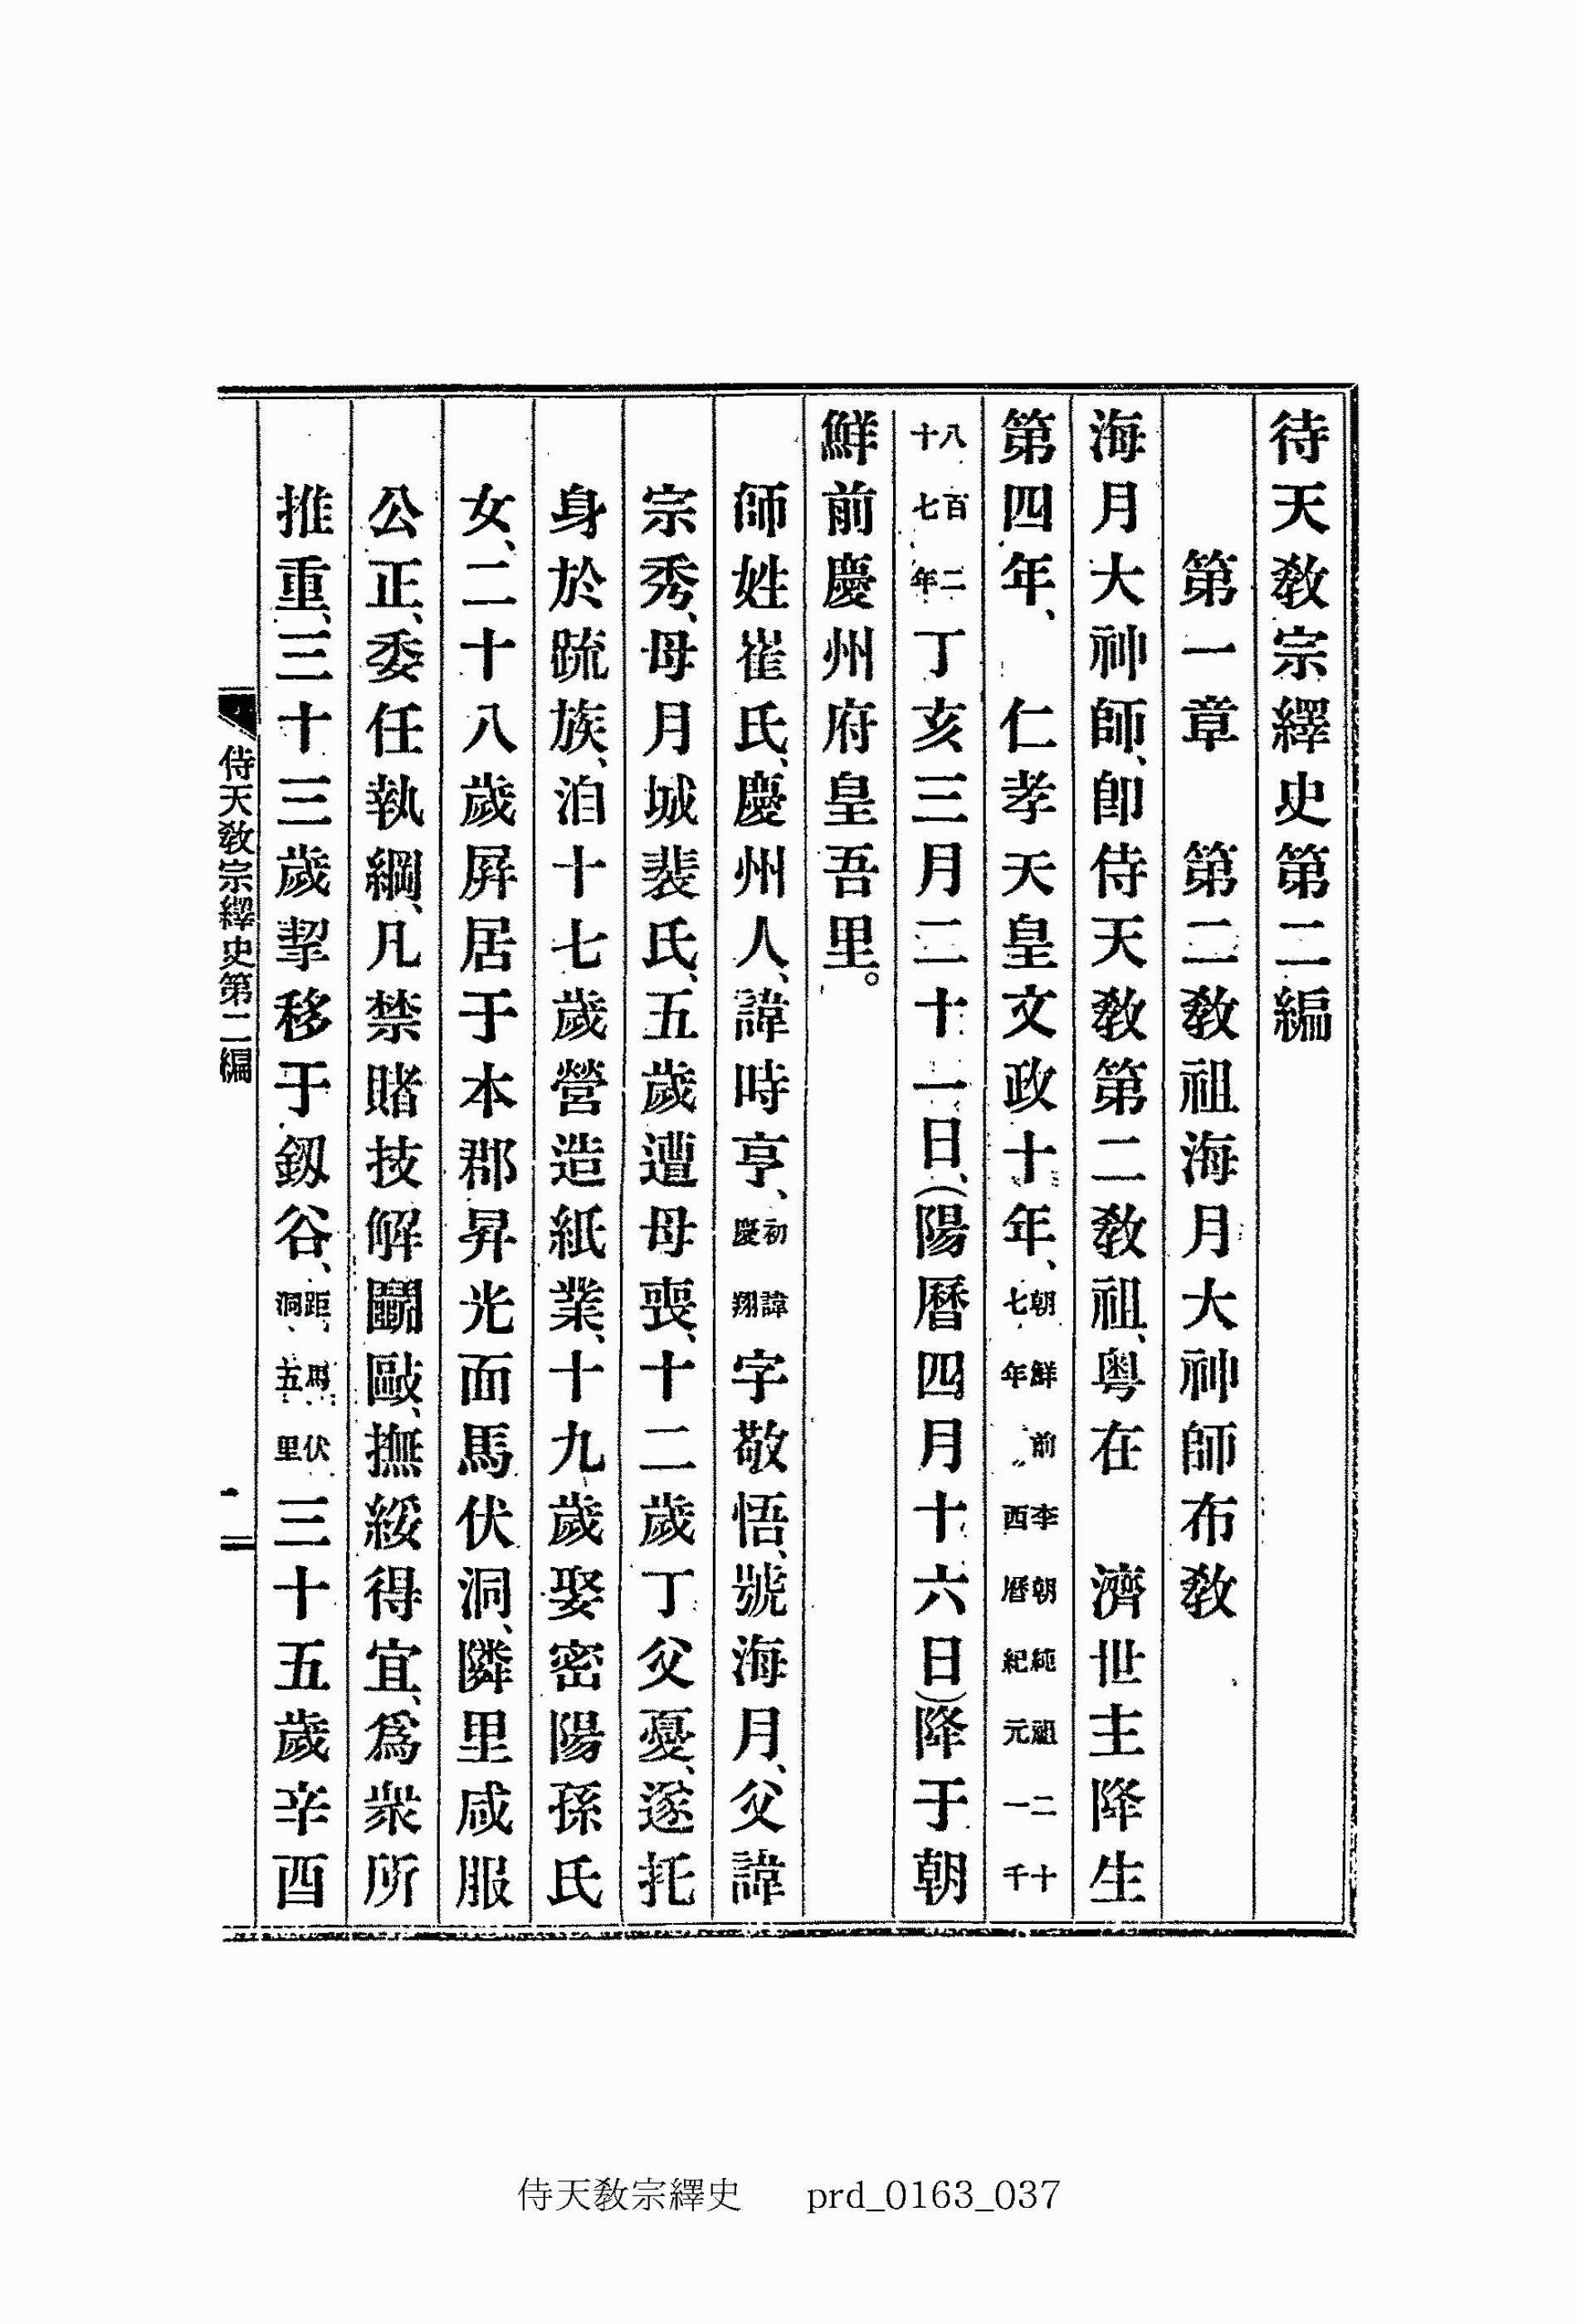 待天敎宗繹史第二編
第一章　第二敎祖海月大神師布敎
海月大神師、卽侍天敎第二敎祖、粤在　濟世主降生
第四年、　仁孝天皇文政十年、朝鮮前李朝純祖二十七年　西曆紀元一千
八百二十七年丁亥三月二十一日、(陽曆四月十六日)降于朝
鮮前慶州府皇吾里。
師姓崔氏、慶州人、諱時亨、初諱慶翔字敬悟、號海月、父諱
宗秀、母月城裴氏、五歲遭母喪、十二歲丁父憂、遂托
身於疏族、洎十七歲營造紙業、十九歲娶密陽孫氏
女、二十八歲屛居于本郡昇光面馬伏洞、隣里咸服
公正、委任執綱、凡禁賭技解鬪歐、撫綏得宜、爲衆所
推重、三十三歲挈移于釰谷、距馬伏洞、五里三十五歲辛酉
侍天敎宗繹史第二編
一
侍天敎宗繹史　prd_0163_037